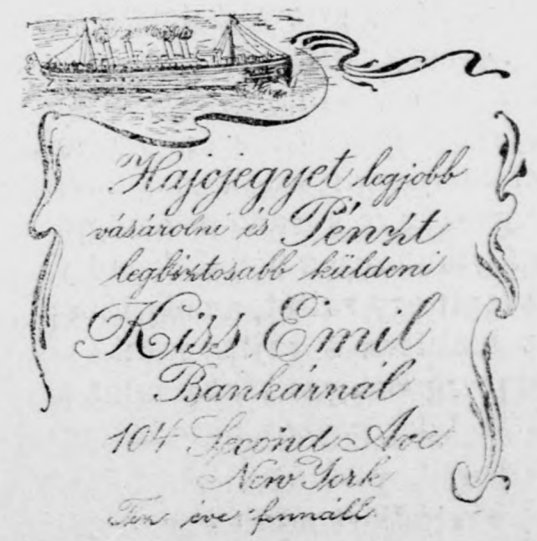 Hajójegyet legjobb
vásárolni és Pénzt
legbiztosabb küldeni
Kiss Emil
Bankárnál
104 Second Ave
New York
Tiz éve fennáll